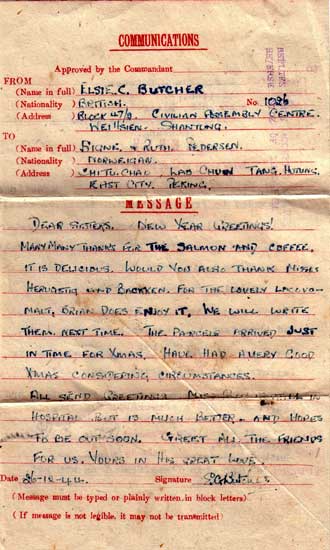 COMMUNICATIONS
Approved by the Commandant
FROM
(Name in full) ELSIE. C. BUTCHER
(Nationality) BRITISH. No. 1026
(Address) BLOCK 47/2. CIVILIAN ASSEMBLY CENTRE.
WEIHSIEN. SHANTUNG.
TO
(Name in full) SIGNE. & RUTH. PEDERSEN.
(Nationality) NORWEIGAN.
(Address) CHITU. CHAO LAO CHUN TANG. HUTUNG.
EAST CITY. PEKING.
MESSAGE
DEAR SISTERS. NEW YEAR GREETINGS!
MANY MANY THANKS FOR THE SALMON AND COFFEE.
IT IS DELICIOUS. WOULD YOU ALSO THANK MISSES
AND BACKKEN. FOR THE LOVELY LOCOVO-
MALT. BRIAN DOES ENJOY IT. WE WILL WRITE
THEM NEXT TIME. THE PARCELS ARRIVED JUST
IN TIME FOR XMAS. HAVE HAD A VERY GOOD
XMAS CONSIDERING CIRCUMSTANCES.
ALL SEND GREETINGS. MISS IN
HOSPITAL BUT IS MUCH BETTER. AND HOPES
TO BE OUT SOON. GREET ALL THE FRIENDS
FOR US. YOURS IN HIS GREAT LOVE.
Date 26-12-44. Signature
(Message must be typed or plainly written in block letters)
(If message is not legible, it may not be transmitted)